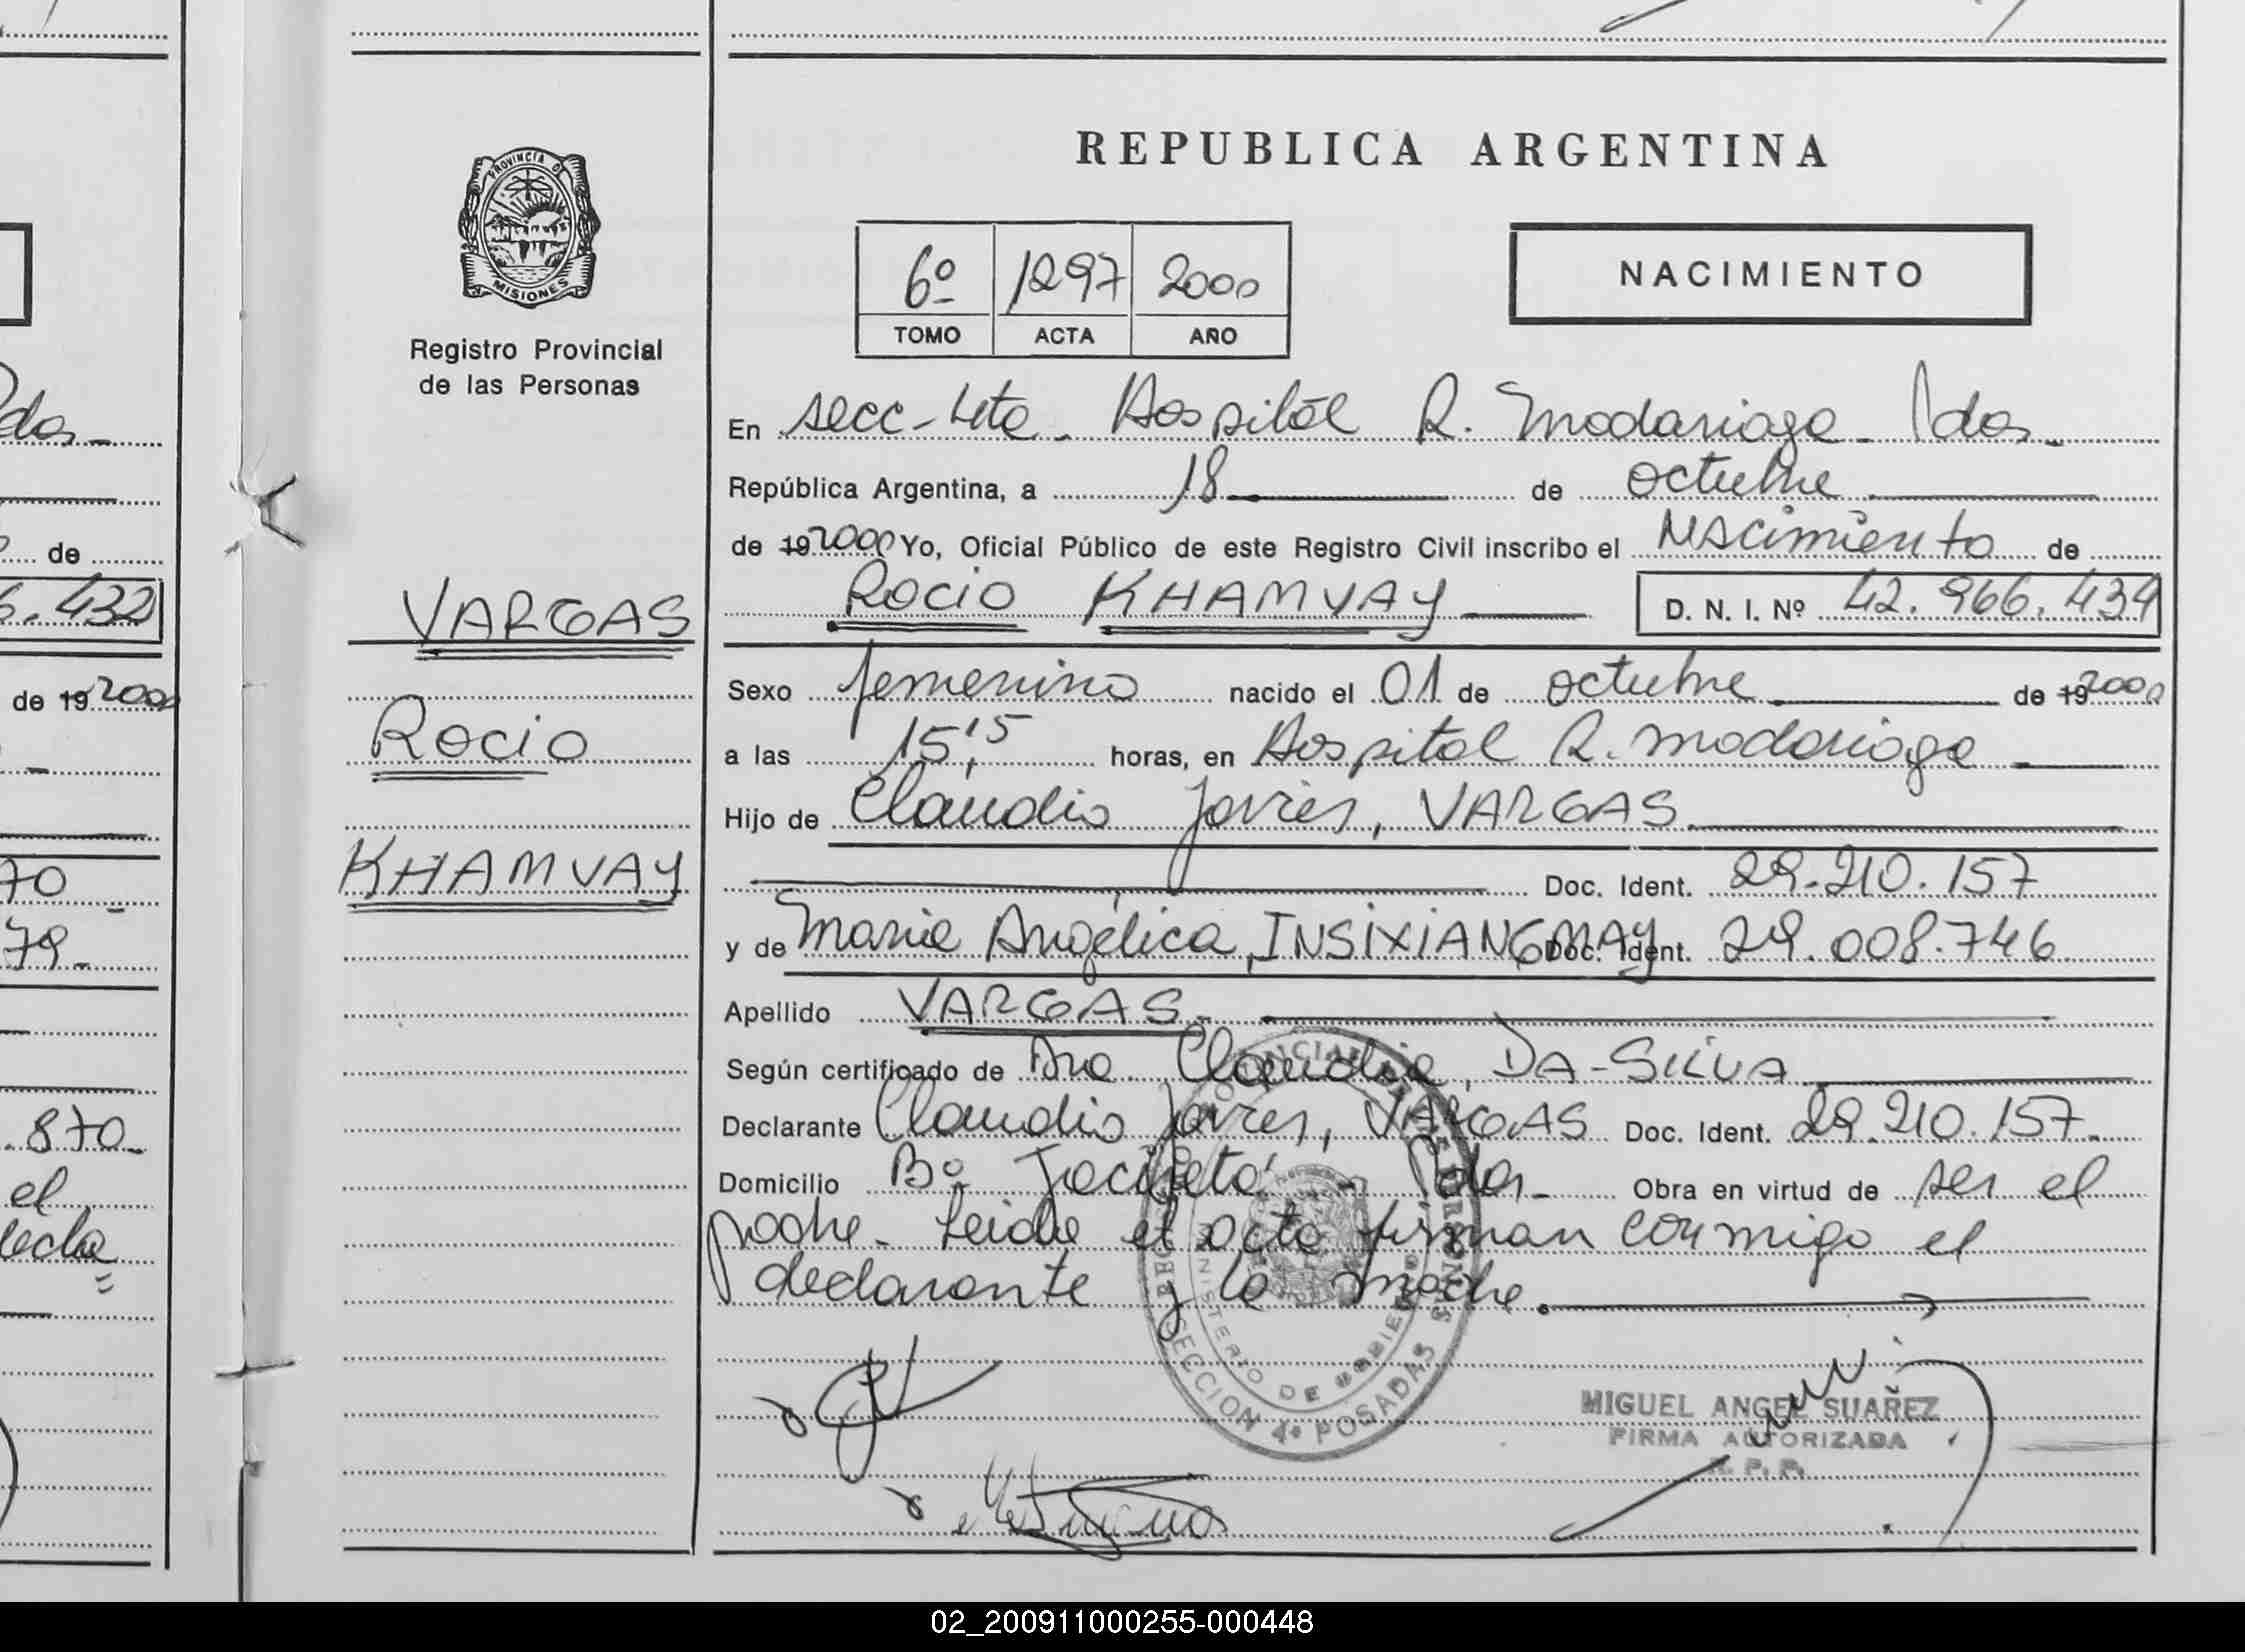 REPUBLICA ARGENTINA
PROVINCIA DE
MISIONES
Registro Provincial
de las Personas
6º 1297 2000
TOMO ACTA AÑO
NACIMIENTO
En secc-4ta- Hospital R. Madariaga- Pdas-
República Argentina, a 18 de octubre
de 19 2000 Yo, Oficial Público de este Registro Civil inscribo el Nacimiento de
Rocio KHAMVAY D. N. I. Nº 42.966.434
VARGAS
Rocio
KHAMVAY
Sexo femenino nacido el 01 de octubre de 19 2000
a las 15,15 horas, en Hospital R. Madariaga
Hijo de Claudio Javier, VARGAS
Doc. Ident. 29.210.157
y de Maria Angélica, INSIXIANGMAY Doc. Ident. 29.008.746
Apellido VARGAS
Según certificado de Dra. Claudia, DA-SILVA
Declarante Claudio Javier, VARGAS Doc. Ident. 29.210.157.-
Domicilio Bº Yaciretá - Pdas- Obra en virtud de ser el
padre- Leida el acta firman conmigo el
declarante y la madre.
MINISTERIO DE GOBIERNO
SECCION 4º POSADAS
MIGUEL ANGEL SUAÑEZ
FIRMA AUTORIZADA
R. P. P.
das-
de
6.432
de 19 2000
70 -
79-
.870-
el
02_200911000255-000448